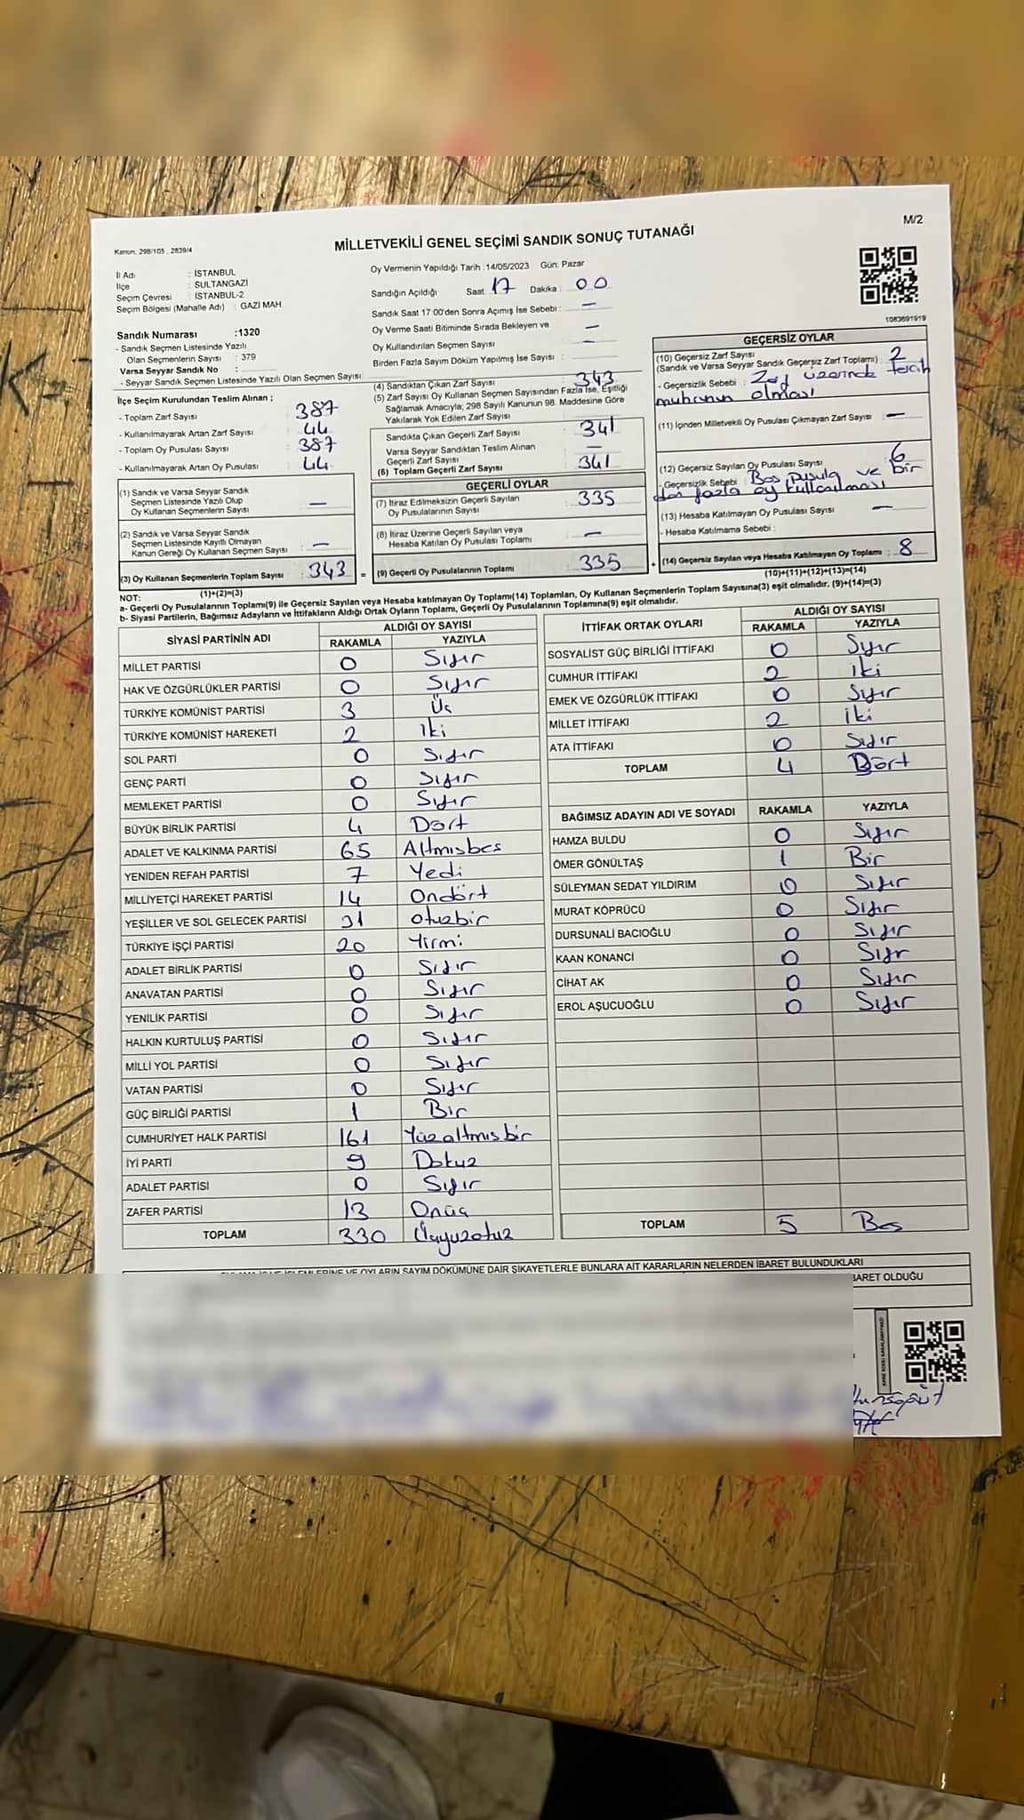 M/2
Kanun: 298/105 , 2839/4
MİLLETVEKİLİ GENEL SEÇİMİ SANDIK SONUÇ TUTANAĞI
İl Adı : İSTANBUL
İlçe : SULTANGAZİ
Seçim Çevresi : İSTANBUL-2
Seçim Bölgesi (Mahalle Adı) : GAZİ MAH
Oy Vermenin Yapıldığı Tarih :14/05/2023 Gün: Pazar
Sandığın Açıldığı Saat: 17 Dakika : 00
Sandık Saat 17:00'den Sonra Açımış İse Sebebi : —
Oy Verme Saati Bitiminde Sırada Bekleyen ve
Oy Kullandırılan Seçmen Sayısı : —
Birden Fazla Sayım Döküm Yapılmış İse Sayısı :
1083691919
Sandık Numarası :1320
- Sandık Seçmen Listesinde Yazılı
Olan Seçmenlerin Sayısı : 379
Varsa Seyyar Sandık No :
- Seyyar Sandık Seçmen Listesinde Yazılı Olan Seçmen Sayısı:
İlçe Seçim Kurulundan Teslim Alınan ;
- Toplam Zarf Sayısı : 387
- Kullanılmayarak Artan Zarf Sayısı : 44
- Toplam Oy Pusulası Sayısı : 387
- Kullanılmayarak Artan Oy Pusulası : 44
(1) Sandık ve Varsa Seyyar Sandık
Seçmen Listesinde Yazılı Olup
Oy Kullanan Seçmenlerin Sayısı : —
(2) Sandık ve Varsa Seyyar Sandık
Seçmen Listesinde Kayıtlı Olmayan
Kanun Gereği Oy Kullanan Seçmen Sayısı : —
(3) Oy Kullanan Seçmenlerin Toplam Sayısı : 343
(1)+(2)=(3)
(4) Sandıktan Çıkan Zarf Sayısı : 343
(5) Zarf Sayısı Oy Kullanan Seçmen Sayısından Fazla İse, Eşitliği
Sağlamak Amacıyla, 298 Sayılı Kanunun 98. Maddesine Göre
Yakılarak Yok Edilen Zarf Sayısı :
Sandıkta Çıkan Geçerli Zarf Sayısı : 341
Varsa Seyyar Sandıktan Teslim Alınan
Geçerli Zarf Sayısı : —
(6) Toplam Geçerli Zarf Sayısı : 341
GEÇERLİ OYLAR
(7) İtiraz Edilmeksizin Geçerli Sayılan
Oy Pusulalarının Sayısı : 335
(8) İtiraz Üzerine Geçerli Sayılan veya
Hesaba Katılan Oy Pusulası Toplamı : —
= (9) Geçerli Oy Pusulalarının Toplamı : 335
GEÇERSİZ OYLAR
(10) Geçersiz Zarf Sayısı : 2
(Sandık ve Varsa Seyyar Sandık Geçersiz Zarf Toplamı)
- Geçersizlik Sebebi : Zarf üzerinde tercih
muhürün olması
(11) İçinden Milletvekili Oy Pusulası Çıkmayan Zarf Sayısı : —
(12) Geçersiz Sayılan Oy Pusulası Sayısı : 6
- Geçersizlik Sebebi : Boş pusula ve bir
den fazla oy kullanılması
(13) Hesaba Katılmayan Oy Pusulası Sayısı : —
- Hesaba Katılmama Sebebi :
+ (14) Geçersiz Sayılan veya Hesaba Katılmayan Oy Toplamı : 8
(10)+(11)+(12)+(13)=(14)
NOT:
a- Geçerli Oy Pusulalarının Toplamı(9) ile Geçersiz Sayılan veya Hesaba katılmayan Oy Toplamı(14) Toplamları, Oy Kullanan Seçmenlerin Toplam Sayısına(3) eşit olmalıdır. (9)+(14)=(3)
b- Siyasi Partilerin, Bağımsız Adayların ve İttifakların Aldığı Ortak Oyların Toplamı, Geçerli Oy Pusulalarının Toplamına(9) eşit olmalıdır.
SİYASİ PARTİNİN ADI ALDIĞI OY SAYISI
RAKAMLA YAZIYLA
MİLLET PARTİSİ 0 Sıfır
HAK VE ÖZGÜRLÜKLER PARTİSİ 0 Sıfır
TÜRKİYE KOMÜNİST PARTİSİ 3 Üç
TÜRKİYE KOMÜNİST HAREKETİ 2 İki
SOL PARTİ 0 Sıfır
GENÇ PARTİ 0 Sıfır
MEMLEKET PARTİSİ 0 Sıfır
BÜYÜK BİRLİK PARTİSİ 4 Dört
ADALET VE KALKINMA PARTİSİ 65 Altmışbeş
YENİDEN REFAH PARTİSİ 7 Yedi
MİLLİYETÇİ HAREKET PARTİSİ 14 Ondört
YEŞİLLER VE SOL GELECEK PARTİSİ 31 otuzbir
TÜRKİYE İŞÇİ PARTİSİ 20 Yirmi
ADALET BİRLİK PARTİSİ 0 Sıfır
ANAVATAN PARTİSİ 0 Sıfır
YENİLİK PARTİSİ 0 Sıfır
HALKIN KURTULUŞ PARTİSİ 0 Sıfır
MİLLİ YOL PARTİSİ 0 Sıfır
VATAN PARTİSİ 0 Sıfır
GÜÇ BİRLİĞİ PARTİSİ 1 Bir
CUMHURİYET HALK PARTİSİ 161 Yüzaltmışbir
İYİ PARTİ 9 Dokuz
ADALET PARTİSİ 0 Sıfır
ZAFER PARTİSİ 13 Onüç
TOPLAM 330 Üçyüzotuz
İTTİFAK ORTAK OYLARI ALDIĞI OY SAYISI
RAKAMLA YAZIYLA
SOSYALİST GÜÇ BİRLİĞİ İTTİFAKI 0 Sıfır
CUMHUR İTTİFAKI 2 İki
EMEK VE ÖZGÜRLÜK İTTİFAKI 0 Sıfır
MİLLET İTTİFAKI 2 İki
ATA İTTİFAKI 0 Sıfır
TOPLAM 4 Dört
BAĞIMSIZ ADAYIN ADI VE SOYADI RAKAMLA YAZIYLA
HAMZA BULDU 0 Sıfır
ÖMER GÖNÜLTAŞ 1 Bir
SÜLEYMAN SEDAT YILDIRIM 0 Sıfır
MURAT KÖPRÜCÜ 0 Sıfır
DURSUNALİ BACIOĞLU 0 Sıfır
KAAN KONANCİ 0 Sıfır
CİHAT AK 0 Sıfır
EROL AŞUCUOĞLU 0 Sıfır
TOPLAM 5 Beş
OYLARIN SAYIM DÖKÜMÜNE DAİR ŞİKAYETLERLE BUNLARA AİT KARARLARIN NELERDEN İBARET BULUNDUKLARI
İBARET OLDUĞU